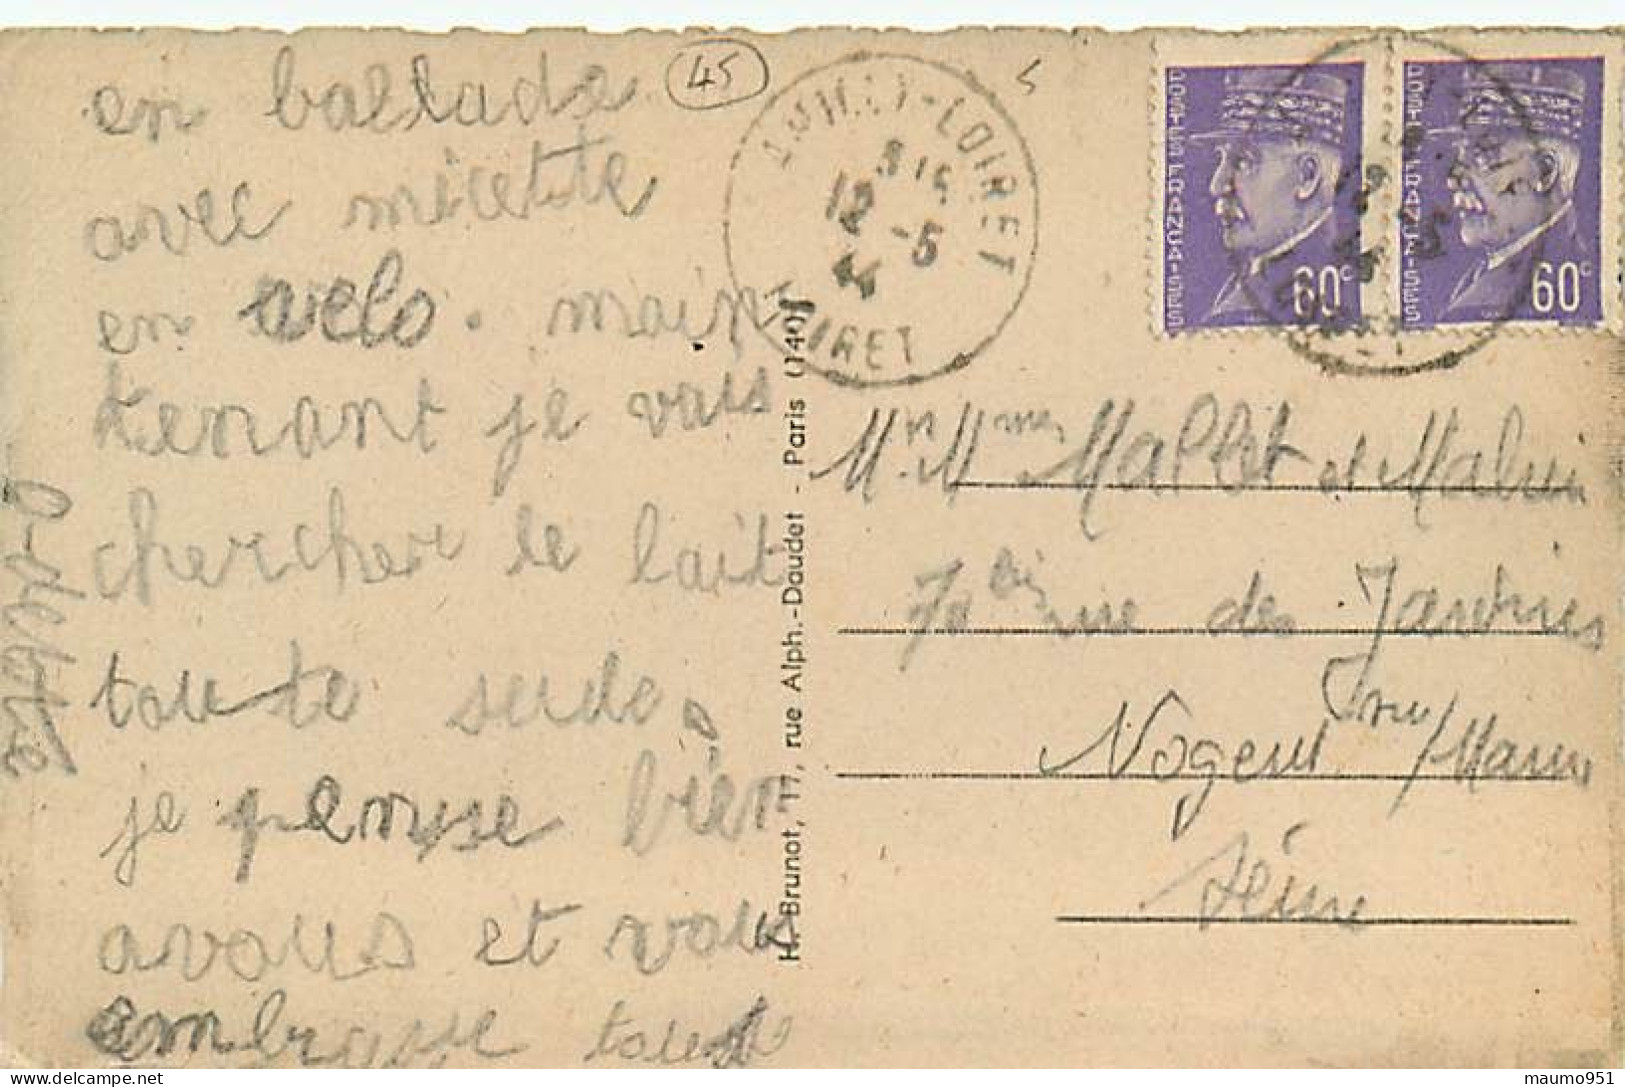 en ballade
avec micette
en velo. main
tenant je vais
chercher le lait
toute seule,
je pensse bien
avous et vous
embrasse tous
45
LOIRET
12
-5
44
LOIRET
POSTES FRANÇAISES
60c
POSTES FRANÇAISES
60c
H. Brunot, 17, rue Alph.-Daudet - Paris (140)
Mr Mmes Mallet et
70 bis rue des Jardins
Nogent sur/Marne
Seine
maumo951